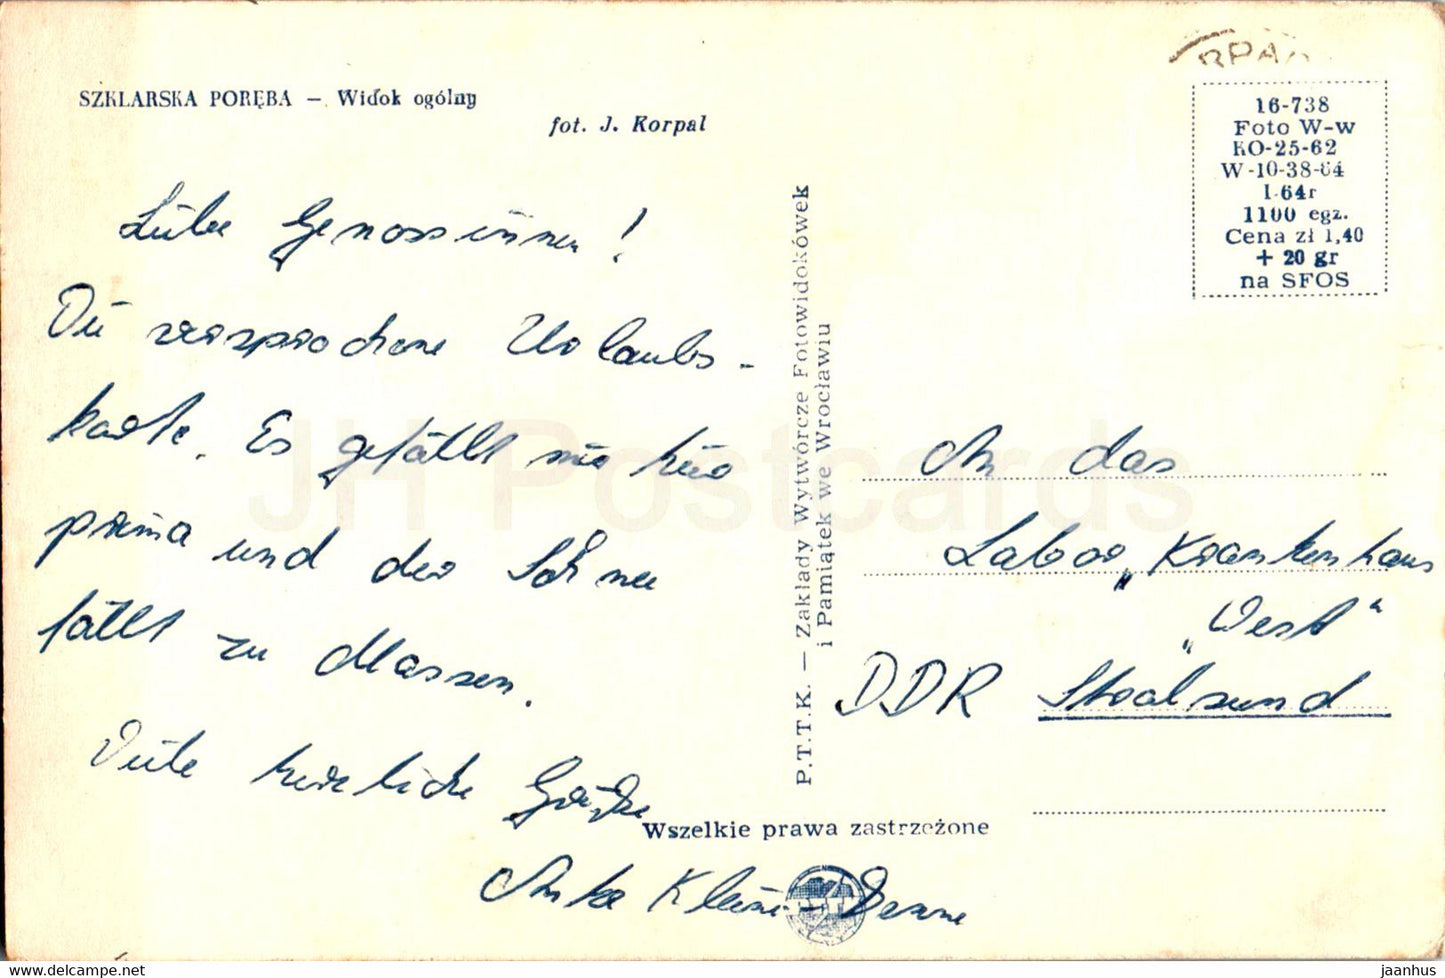 SZKLARSKA PORĘBA – Widok ogólny
fot. J. Korpal
Liebe Genossinnen!
Die versprochene Urlaubs-
karte. Es gefällt mir hier
prima und der Schnee
fällt zu Massen.
Viele herzliche Grüße
Anke Klein-
P.T.T.K. — Zakłady Wytwórcze Fotowidokówek
i Pamiątek we Wrocławiu
16-738
Foto W-w
KO-25-62
W-10-38-64
I-64r
1100 egz.
Cena zł 1,40
+ 20 gr
na SFOS
An das
Labor „Krankenhaus
„West“
DDR Stralsund
Wszelkie prawa zastrzeżone
JH Postcards
https://www.delcampe.net
jaanhus